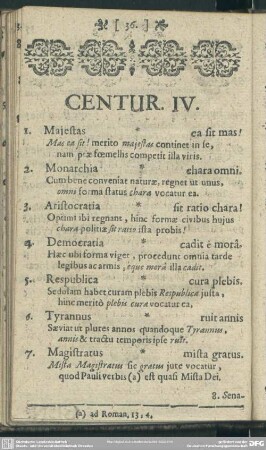 [ 36. ]
CENTUR. IV.
1. Majestas * ea sit mas!
Mas ea sit! merito majestas continet in se,
nam præ fœmellis competit illa viris.
2. Monarchia * chara omni.
Cum bene conveniat naturæ, regnet ut unus,
omni forma status chara vocatur ea.
3. Aristocratia * sit ratio chara!
Optimi ibi regnant, hinc formæ civibus hujus
chara politiæ sit ratio ista probis!
4. Democratia * cadit è morâ.
Hæc ubi forma viget, procedunt omnia tarde
legibus ac armis, eque morâ illa cadit.
5. Respublica * cura plebis.
Sedulam habet curam plebis Respublica justa,
hinc meritò plebis cura vocatur ea.
6. Tyrannus * ruit annis
Sæviat ut plures annos quandoque Tyrannus,
annis & tractu temporis ipse ruit.
7. Magistratus * mista gratus.
Mista Magistratus sic gratus jute vocatur,
quod Pauli verbis (a) est quasi Mista Dei.
8. Sena-
(a) ad Roman. 13, 4.